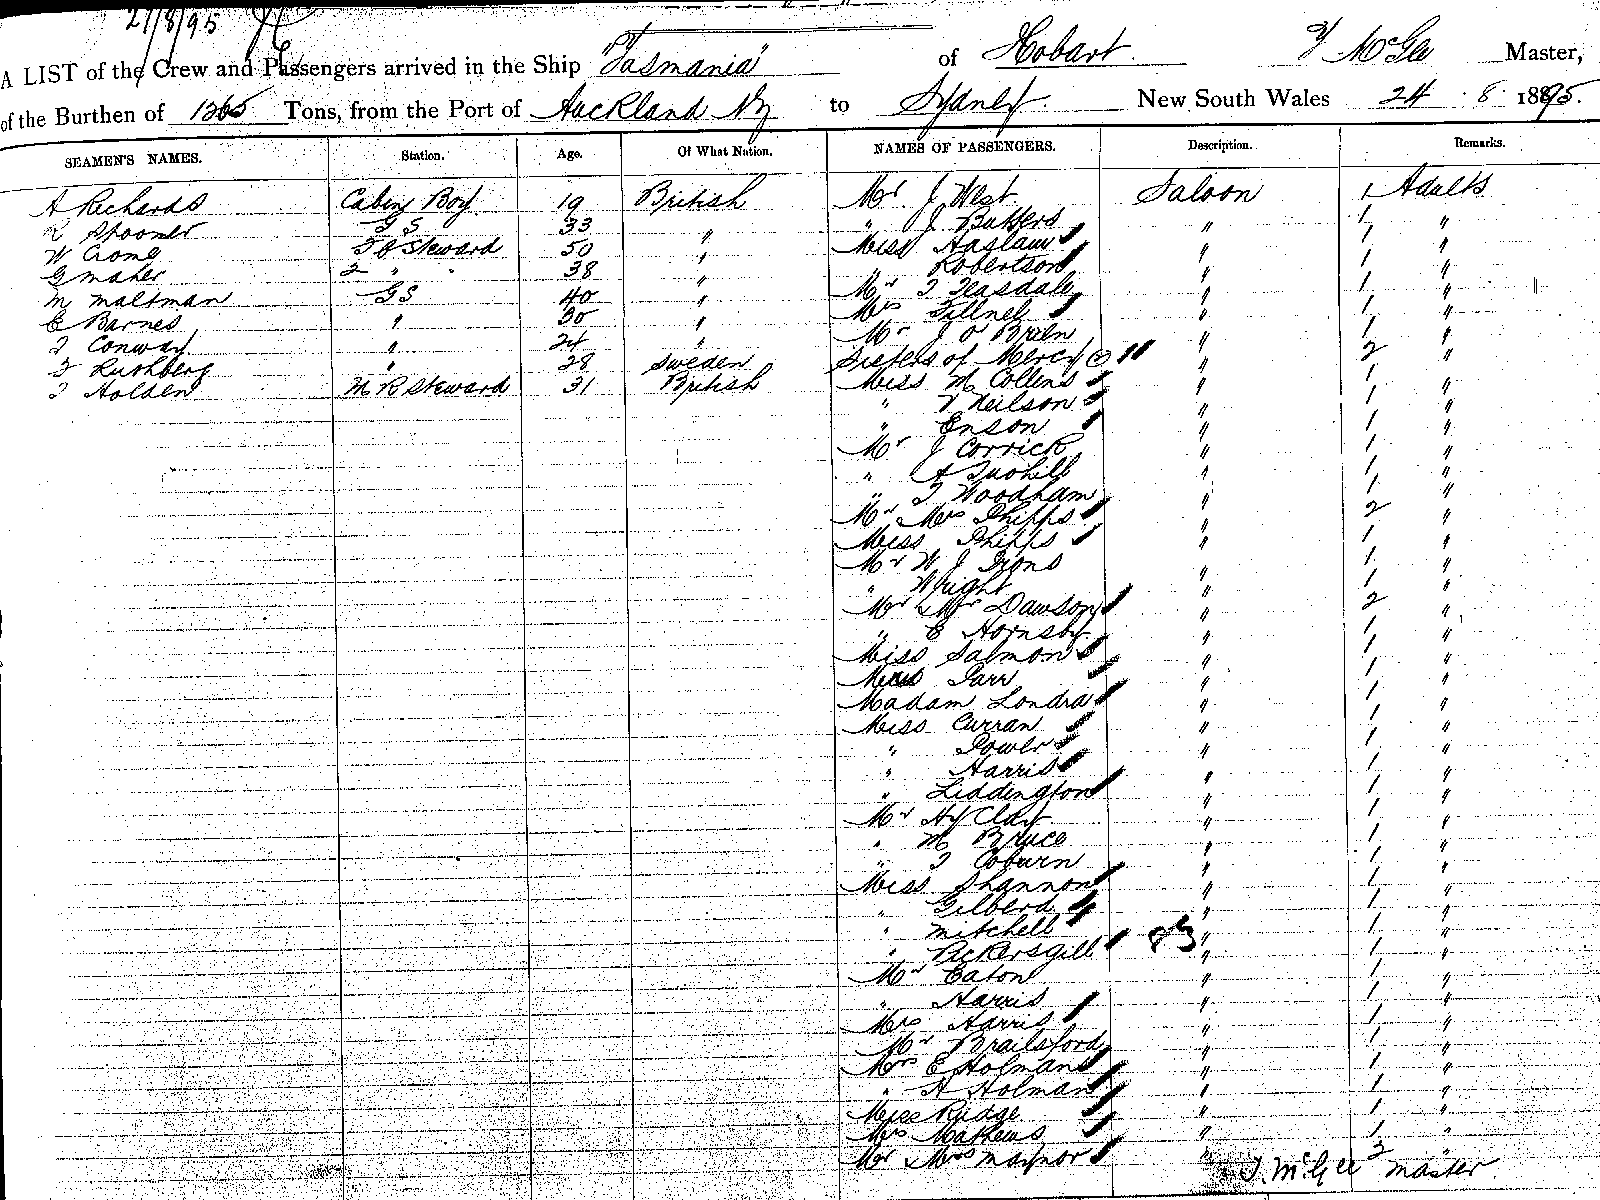 27/8/95
A LIST of the Crew and Passengers arrived in the Ship "Tasmania" of Hobart T McGee Master,
of the Burthen of 1265 Tons, from the Port of Auckland NZ to Sydney New South Wales 24 8 1895.
SEAMEN'S NAMES. Station. Age. Of What Nation. NAMES OF PASSENGERS. Description. Remarks.
A Richards Cabin Boy 19 British Mr J West Saloon 1 Adults
R Spooner G S 33 " " J Butters " 1 "
W Crome F C Steward 50 " Miss Haslam " 1 "
G Maher 2 " " 38 " " Robertson " 1 "
M Maltman G S 40 " Mr T Teasdale " 1 "
E Barnes " 30 " Mrs Tillnel " 1 "
T Conway " 24 " Mr J O Brien " 1 "
F Rushberg " 28 Sweden Sisters of Mercy (2) " 2 "
T Holden M R Steward 31 British Miss M Collens " 1 "
" V Neilson " 1 "
" Enson " 1 "
Mr J Corrick " 1 "
" A Tuohill " 1 "
" T Woodham " 1 "
Mr Mrs Phipps " 2 "
Miss Phipps " 1 "
Mr W J Irons " 1 "
" Wright " 1 "
Mr & Mrs Dawson " 2 "
" E Hornsby " 1 "
Miss Salmon " 1 "
Parr " 1 "
Madam Londra " 1 "
Miss Curran " 1 "
" Power " 1 "
" Harris " 1 "
" Liddington " 1 "
Mr Hy Clay " 1 "
" M Bruce " 1 "
" T Coburn " 1 "
Miss Shannon " 1 "
" Gilberd " 1 "
" Mitchell " 1 "
" Pickersgill " 1 "
Mr Eaton " 1 "
" Harris " 1 "
Mrs Harris " 1 "
Mr Brailsford " 1 "
Mrs E Holman " 1 "
" A Holman " 1 "
Miss Rudge " 1 "
Mrs Mathews " 1 "
Mr & Mrs Maynor " 2 "
T. McGee Master